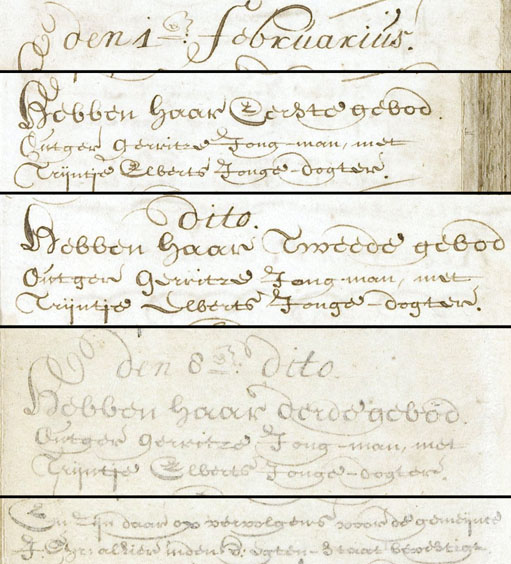 den 1 en Februarius.
Hebben haar Eerste gebod.
Outger Gerritze Jong-man, met
Trijntje Elberts Jonge-dogter.
dito.
Hebben haar Tweede gebod
Outger Gerritze Jong-man, met
Trijntje Elberts Jonge-dogter.
den 8 en dito.
Hebben haar derde gebod.
Outger Gerritze Jong-man, met
Trijntje Elberts Jonge-dogter.
En zijn daar op vervolgens voor de gemeijnte
J. alhier inden Egten-staat bevestigt.